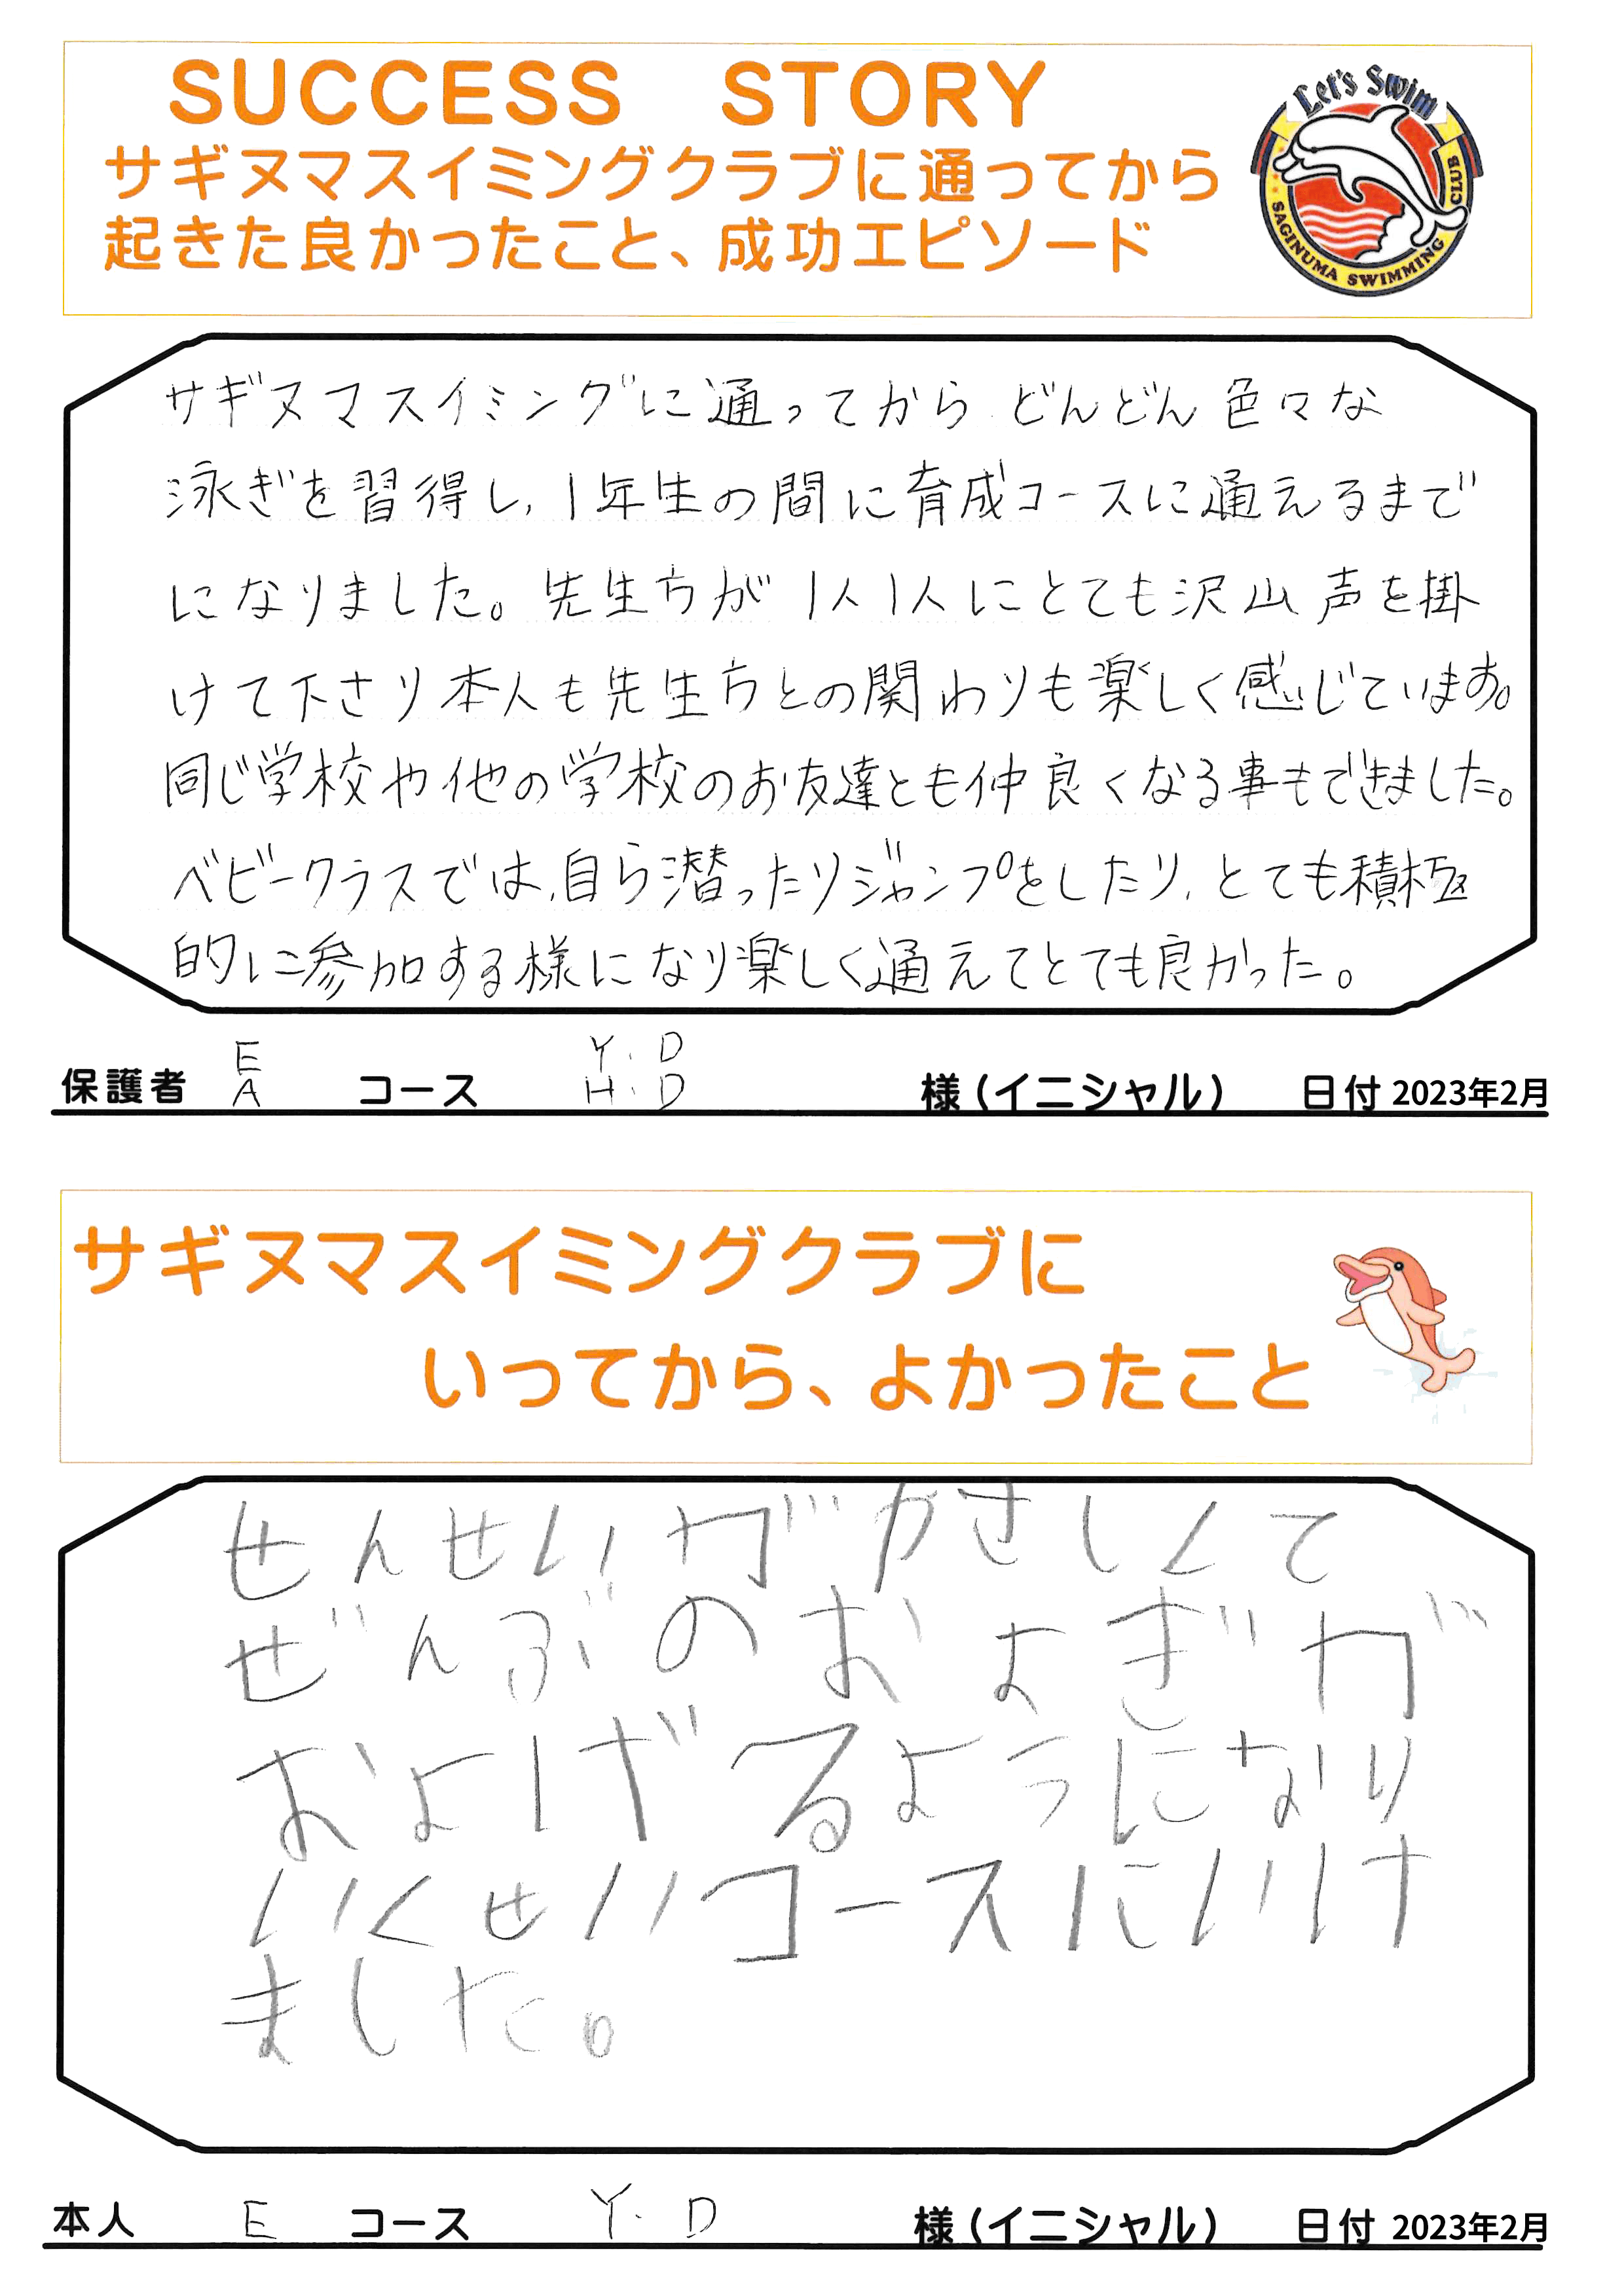 SUCCESS STORY
サギヌマスイミングクラブに通ってから
起きた良かったこと、成功エピソード
Let's Swim
SAGINUMA SWIMMING CLUB
サギヌマスイミングに通ってから どんどん色々な
泳ぎを習得し、1年生の間に育成コースに通えるまで
になりました。先生方が1人1人にとても沢山声を掛
けて下さり本人も先生方との関わりも楽しく感じています。
同じ学校や他の学校のお友達とも仲良くなる事もできました。
ベビークラスでは、自ら潜ったりジャンプをしたり、とても積極
的に参加する様になり楽しく通えてとても良かった。
保護者 E A コース Y.D H.D 様(イニシャル) 日付 2023年2月
サギヌマスイミングクラブに
いってから、よかったこと
せんせいがやさしくて
ぜんぶのおよぎが
およげるようになり
いくせいコースにいけ
ました。
本人 E コース Y.D 様(イニシャル) 日付 2023年2月